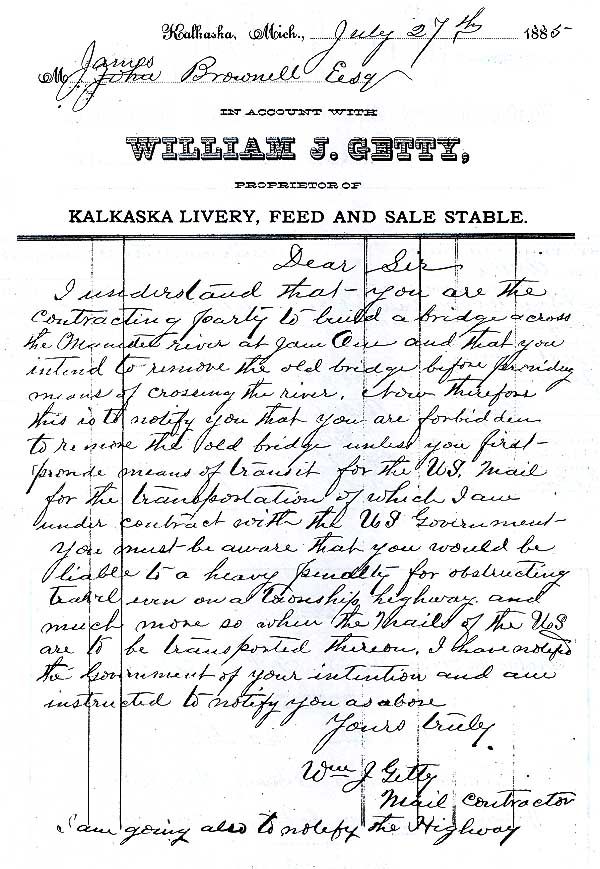 Kalkaska, Mich., July 27th 1885
M James
John Brownell Esq
IN ACCOUNT WITH
WILLIAM J. GETTY,
PROPRIETOR OF
KALKASKA LIVERY, FEED AND SALE STABLE.
Dear Sir
I understand that you are the
contracting party to build a bridge across
the river at and that you
intend to remove the old bridge before providing
means of crossing the river. Now therefore
this is to notify you that you are forbidden
to remove the old bridge unless you first
provide means of transit for the U.S. Mail
for the transportation of which I am
under contract with the US Government
You must be aware that you would be
liable to a heavy penalty for obstructing
travel even on a Township highway and
much more so when the Mails of the US
are to be transported thereon. I have notified
the Government of your intention and am
instructed to notify you as above
Yours truly.
Wm J Getty
Mail Contractor
I am going also to notify the Highway